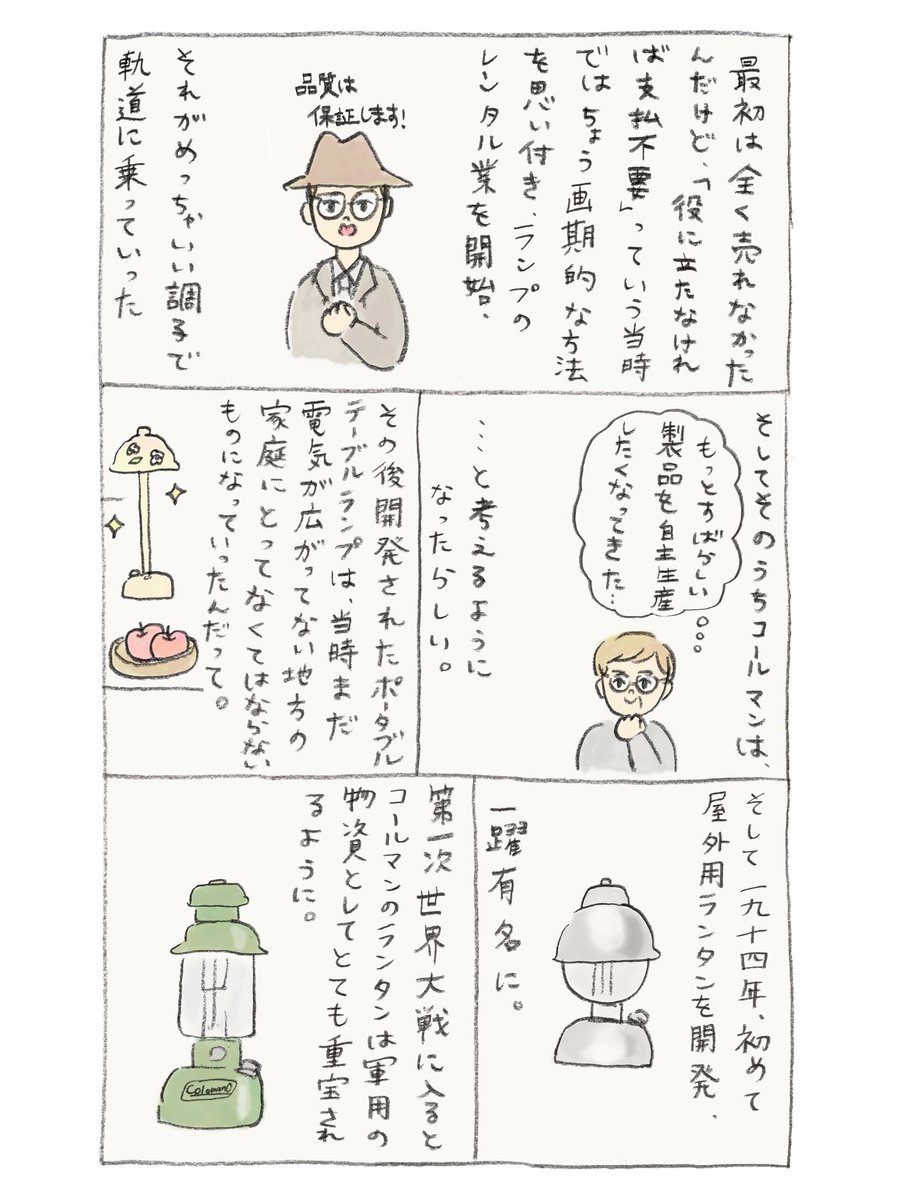 最初は全く売れなかった
んだけど、「役に立たなけれ
ば支払不要」っていう当時
ではちょう画期的な方法
を思い付き、ランプの
レンタル業を開始、
品質は
保証します!
それがめっちゃいい調子で
軌道に乗っていった
そしてそのうちコールマンは、
もっとすばらしい
製品を自主生産
したくなってきた…
…と考えるように
なったらしい。
その後開発されたポータブル
テーブルランプは、当時まだ
電気が広がってない地方の
家庭にとってなくてはならない
ものになっていったんだって。
そして一九十四年、初めて
屋外用ランタンを開発、
一躍有名に。
第一次世界大戦に入ると
コールマンのランタンは軍用の
物資としてとても重宝され
るように。
Coleman